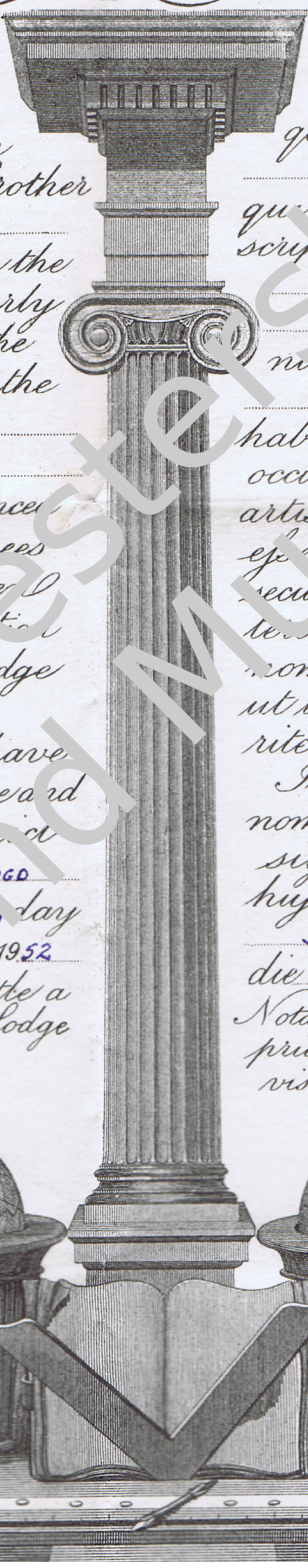 rother
the
rly
he
the
nced
ees
tion
dge
ave
e and
day
1952
tte a
Lodge
qu
scrip
ni
hab
occu
artis
secu
nom
ut
rite
nom
sig
huj
die
Nota
pri
vis
esters
nd Mu